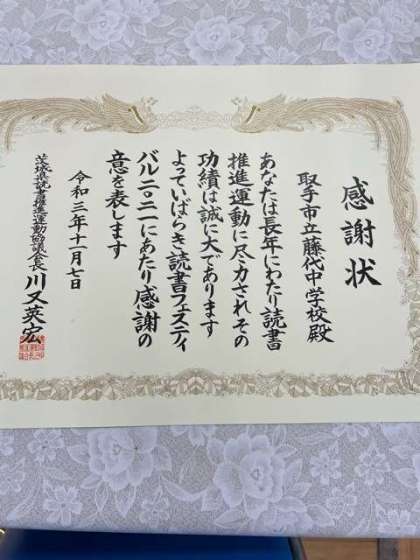 感謝状
取手市立藤代中学校殿
あなたは長年にわたり読書
推進運動に尽力されその
功績は誠に大であります
よっていばらき読書フェスティ
バル二〇二一にあたり感謝の
意を表します
令和三年十一月七日
茨城県読書推進運動協議会長 川又英宏